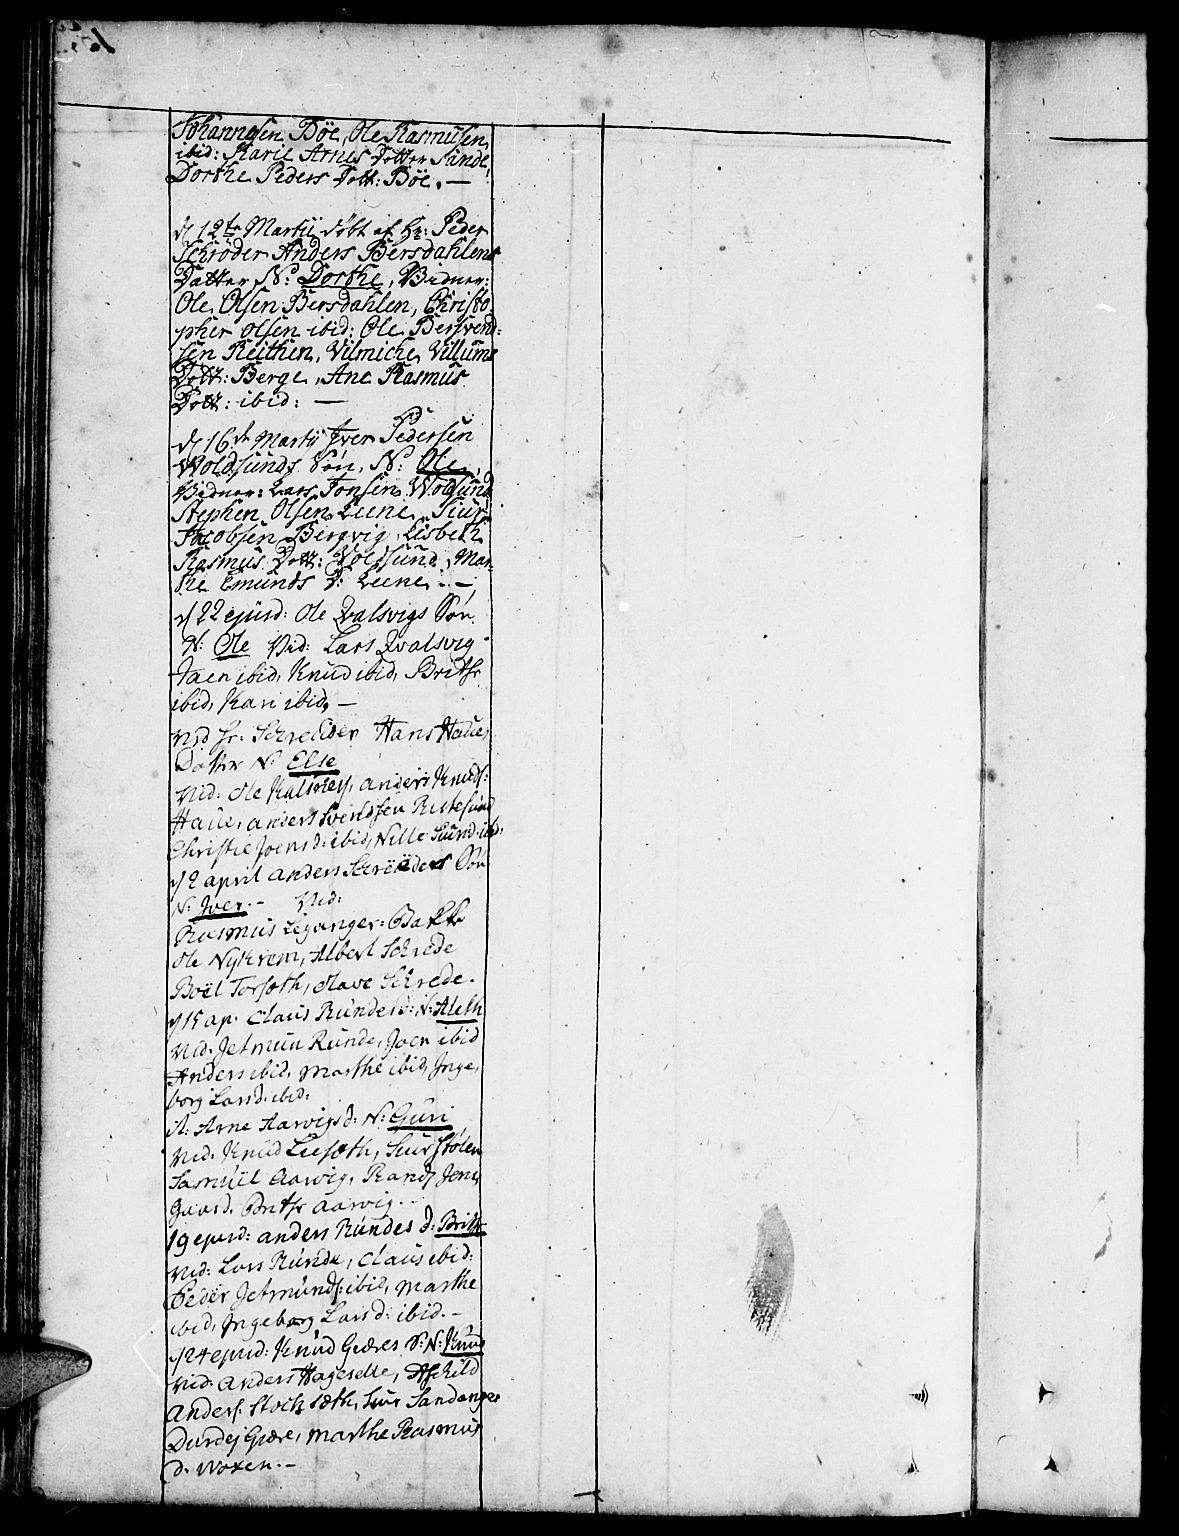 Johannesen Böe, Ole Rasmusen
ibid: Karie Arnes Dotter Sande,
Dorthe Peders Dott: Böe. —
d 12te Martii döbt af Hr: Peder
Schröder Anders Bersdahlens
Datter N: Dorthe, Vidner:
Ole Olsen Bersdahlen, Christo-
pher Olsen ibid: Ole Bersvend-
sen Reithen, Vilmiche Villums
Dott: Berge, Ane Rasmus
Dott: ibid: —
d 16de Martii Jver Pedersen
Woldsunds Sön, N: Ole,
Vidner: Lars Jonsen Woldsund
Stephen Olsen Leene, Siur
Jacobsen Bergvig, Lisbeth
Rasmus Dott: Voldsund, Mar-
the Emunds D: Leene. —
d 22 ejusd: Ole Qvalsvigs Sön
N: Ole Vid: Lars Qvalsvig
Jaen ibid, Knud ibid, Brithe
ibid, Kari ibid, —
Ved hr: Schreuder Hans Haue,
Dotter N: Else
Vid: Ole anders Knuds:
Haue, anders Svendsen
Christie Joens d: ibid, Nille Siurd: ibid:
d 2 april anders Schröders Sön
N: Jver. — Vid:
Rasmus Leganger: Bakke
Ole Nykrem, Albert Schrede
Boël Torseth, Olave Schrede.
d 15 ap. Claus Rundes d: N: Aleth
Vid. Jetmun Runde, Joen ibid
Anders ibid, Marthe ibid, Inge,
borg Lars d. ibid:
it: Arne Aarvigs d: N: Guri
Vid. Knud Siur Stölen
Samuël Aarvig, Rand Jens
Gaard, Brithe Aarvig. —
19 ejusd: anders Rundes d: Brithe
Vid: Lars Runde, Claus ibid:
Peder Jetmunds: ibid, Marthe
ibid, Ingeborg Lars d: ibid. —
d 24 ejusd: Knud Giæres S: N: Knud
Vid: Anders Hageselle, Aschild
Anders: Stochsæth, Siur Sandanger
Durdej Giære, Marthe Rasmus
d. Woxen. —